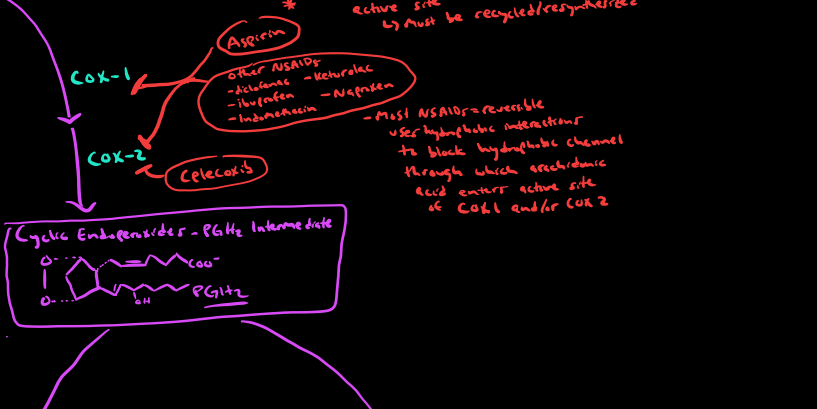 * active site
↳ Must be recycled/resynthesized
Aspirin
COX-1
other NSAIDs
-diclofenac -Ketorolac
-ibuprofen - Naproxen
-Indomethacin
- Most NSAIDs = reversible
uses hydrophobic interactions
to block hydrophobic channel
through which arachidonic
acid enters active site
of COX1 and/or COX2
COX-2
Celecoxib
Cyclic Endoperoxides - PGH2 Intermediate
O COO-
O OH PGH2